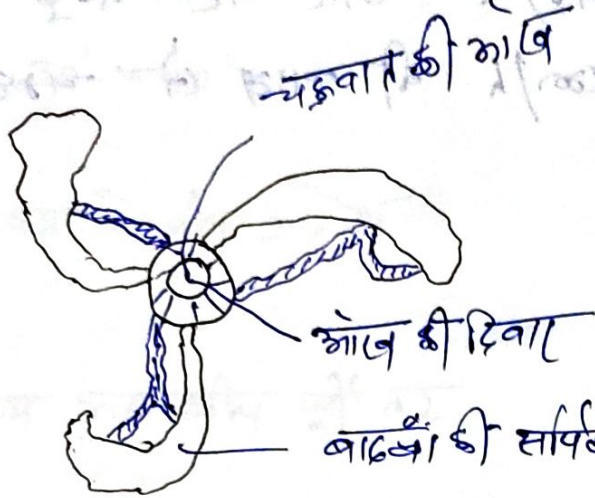 चक्रवात की आँख
आँख की दिवार
बादलों की सर्पिल